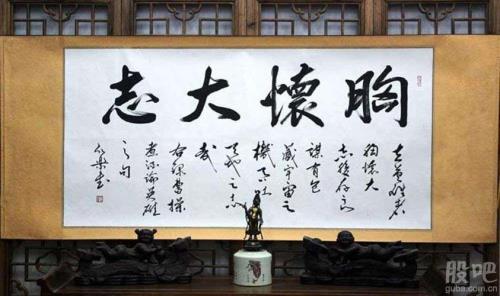 胸懷大志
夫英雄者
胸懷大
志腹有良
謀有包
藏宇宙之
機吞吐
天地之志
右錄曹操
煮酒論英雄
之句
股吧
guba.com.cn